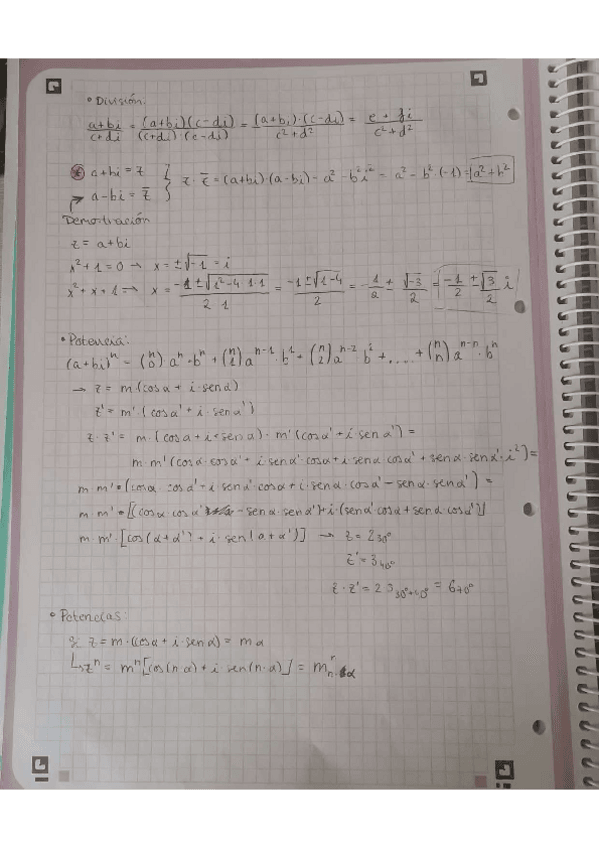 • División:
(a+bi)/(c+di) = (a+bi)(c-di)/(c+di)(c-di) = (a+bi)·(c-di)/(c²+d²) = (e + fi)/(c²+d²)
a+bi = z
a-bi = z̄ } z·z̄ = (a+bi)(a-bi) = a² - b²i² = a² - b²·(-1) = a²+b²
Demostración
z = a+bi
x²+1=0 → x = ±√-1 = i
x²+x+1 → x = (-1±√(1²-4·1·1))/(2·1) = (-1±√(1-4))/2 = -1/2 ± √-3/2 = -1/2 ± √3/2 i
• Potencia:
(a+bi)ⁿ = (n 0) aⁿ·bⁿ + (n 1) aⁿ⁻¹·b¹ + (n 2) aⁿ⁻²·b² + ..... + (n n) aⁿ⁻ⁿ·bⁿ
→ z = m(cosα + i·senα)
z' = m'·(cosα' + i·senα')
z·z' = m·(cosα + i·senα)·m'(cosα' + i·senα') =
m·m'(cosα·cosα' + i·senα'·cosα + i·senα·cosα' + senα·senα'·i²) =
m·m'·(cosα·cosα' + i·senα'·cosα + i·senα·cosα' - senα·senα') =
m·m'·[(cosα·cosα' - senα·senα') + i·(senα'·cosα + senα·cosα')]
m·m'·[cos(α+α') + i·sen(α+α')] → z = 2₃₀°
z' = 3₄₀°
z·z' = 2·3₃₀°₊₄₀° = 6₇₀°
• Potencias:
z = m·(cosα + i·senα) = mα
↳ zⁿ = mⁿ[cos(n·α) + i sen(n·α)] = mⁿ n·α